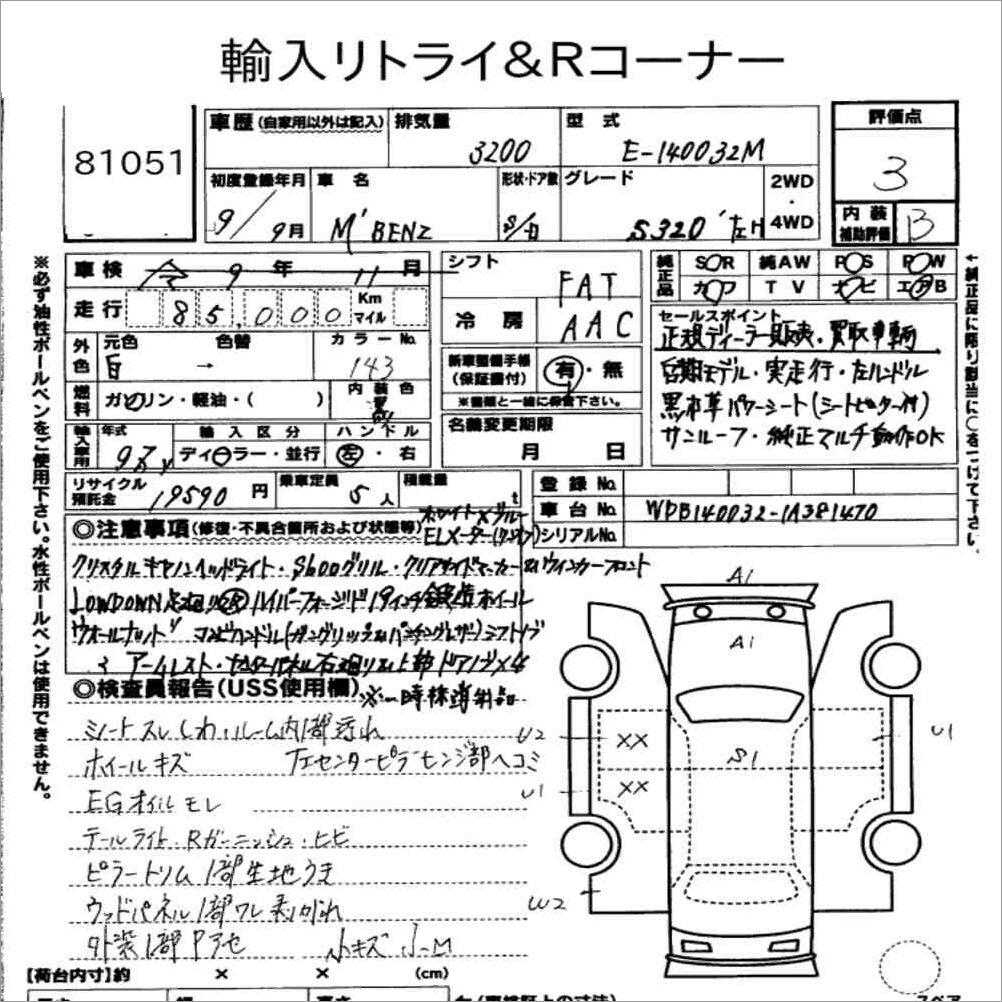 輸入リトライ&Rコーナー
81051
車歴(自家用以外は記入)
排気量
3200
型式
E-140032M
評価点
3
初度登録年月
9/9月
車名
M'BENZ
形状・ドア数
S/4
グレード
S320 左H
2WD
・
4WD
内装
補助評価
B
車検
令 9年 11月
シフト
FAT
純正品
SR
純AW
PS
PW
カワ
TV
ナビ
エアB
走行
85,000
Km
マイル
冷房
AAC
セールスポイント
正規ディーラー販売・買取車輌
後期モデル・実走行・左ハンドル
黒本革パワーシート(シートヒーター付)
サンルーフ・純正マルチ動作OK
外色
元色
白
→
色替
カラーNo.
143
新車整備手帳
(保証書付)
有・無
※書類と一緒に保管下さい。
燃料
ガソリン・軽油・( )
内装色
黒
名義変更期限
月 日
輸入車用
年式
97y
輸入区分
ディーラー・並行
ハンドル
左・右
リサイクル
預託金
19590円
乗車定員
5人
積載量
t
登録No.
車台No.
WDB140032-1A381470
シリアルNo.
◎注意事項(修復・不具合箇所および状態等)
ホワイト×ブルー
ELメーター
クリスタルキャノンヘッドライト・S600グリル・クリアサイドマーカー&ウィンカーフロント
LOWDOWN ハイパーフォージド19インチ鍛造ホイール
ウォールナット コンビハンドル(ガングリップ&パンチングレザー)シフトノブ
アームレスト・センターパネル右廻り&上部ドアノブ
◎検査員報告(USS使用欄)
※一時抹消
シートスレしわ・ルーム内1部汚れ
ホイールキズ 左センターピラーヒンジ部ヘコミ
EGオイルモレ
テールライト・Rガーニッシュ・ヒビ
ピラートリム1部生地うき
ウッドパネル1部ワレ剥がれ
外装1部Pアセ 小キズ
A1
A1
S1
U2
XX
U1
U1
XX
W2
【荷台内寸】約 × × (cm)
※必ず油性ボールペンをご使用下さい。水性ボールペンは使用できません。
←純正品に限り該当に○をつけて下さい。